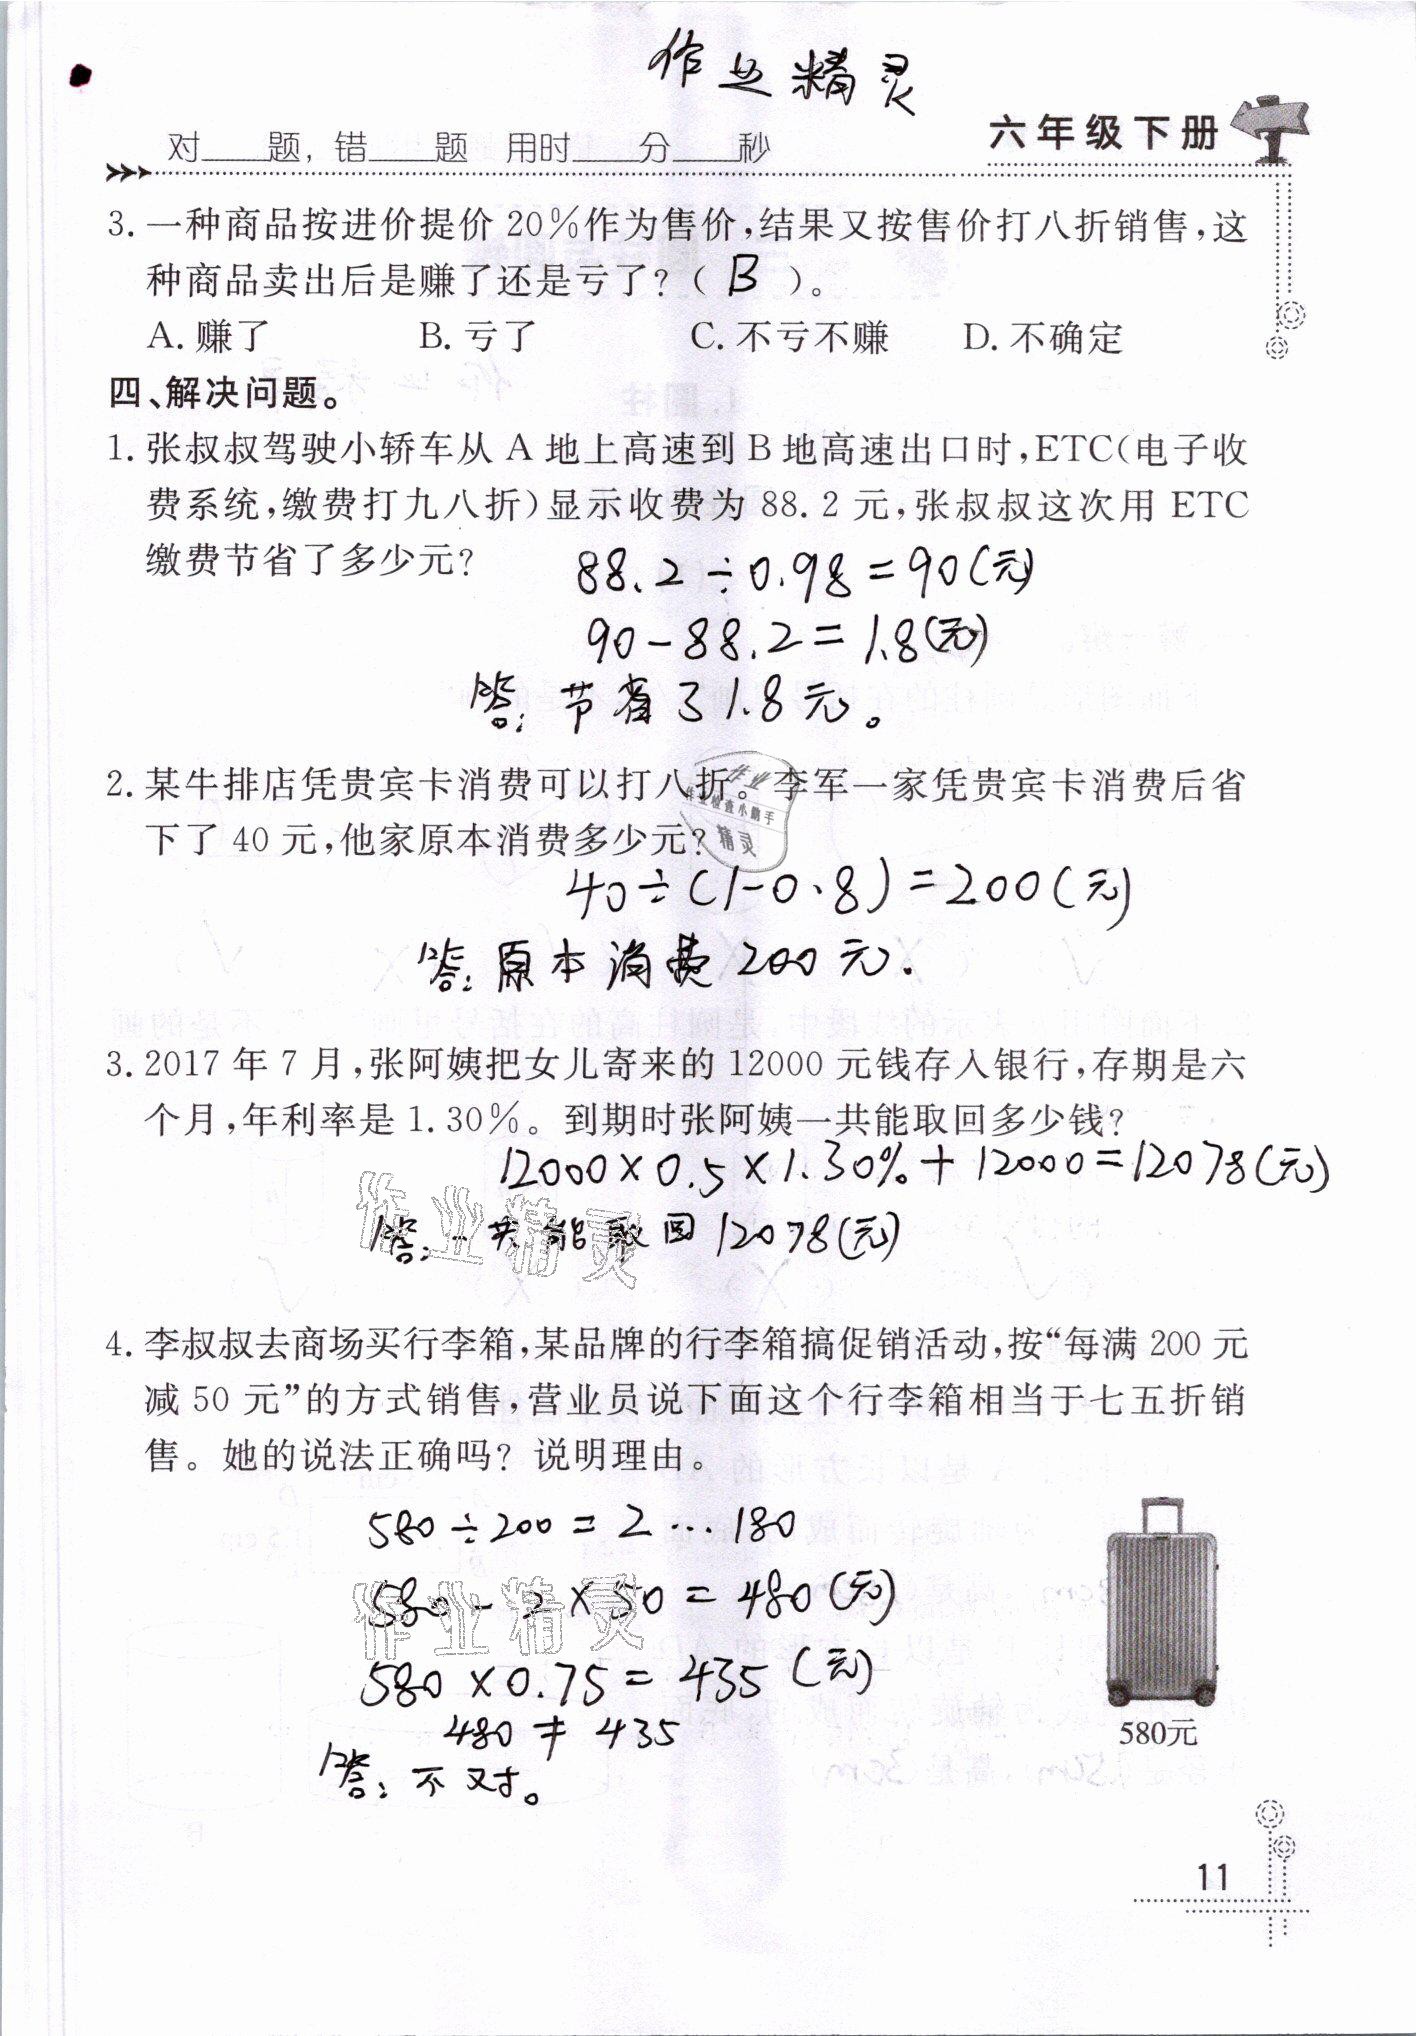 作业精灵
对____题，错____题 用时____分____秒
六年级下册
3. 一种商品按进价提价 20%作为售价，结果又按售价打八折销售，这
种商品卖出后是赚了还是亏了？（ B ）。
A. 赚了 B. 亏了 C. 不亏不赚 D. 不确定
四、解决问题。
1. 张叔叔驾驶小轿车从 A 地上高速到 B 地高速出口时，ETC（电子收
费系统，缴费打九八折）显示收费为 88.2 元，张叔叔这次用 ETC
缴费节省了多少元？
88.2÷0.98=90(元)
90-88.2=1.8(元)
答：节省了1.8元。
2. 某牛排店凭贵宾卡消费可以打八折。李军一家凭贵宾卡消费后省
下了 40 元，他家原本消费多少元？
作业
作业检查小助手
精灵
40÷(1-0.8)=200(元)
答：原本消费200元.
3. 2017 年 7 月，张阿姨把女儿寄来的 12000 元钱存入银行，存期是六
个月，年利率是 1.30%。到期时张阿姨一共能取回多少钱？
12000×0.5×1.30%+12000=12078(元)
作业精灵
答：一共能取回12078(元)
4. 李叔叔去商场买行李箱，某品牌的行李箱搞促销活动，按“每满 200 元
减 50 元”的方式销售，营业员说下面这个行李箱相当于七五折销
售。她的说法正确吗？说明理由。
580÷200=2…180
580-2×50=480(元)
作业精灵
580×0.75=435(元)
480≠435
580元
答：不对。
11